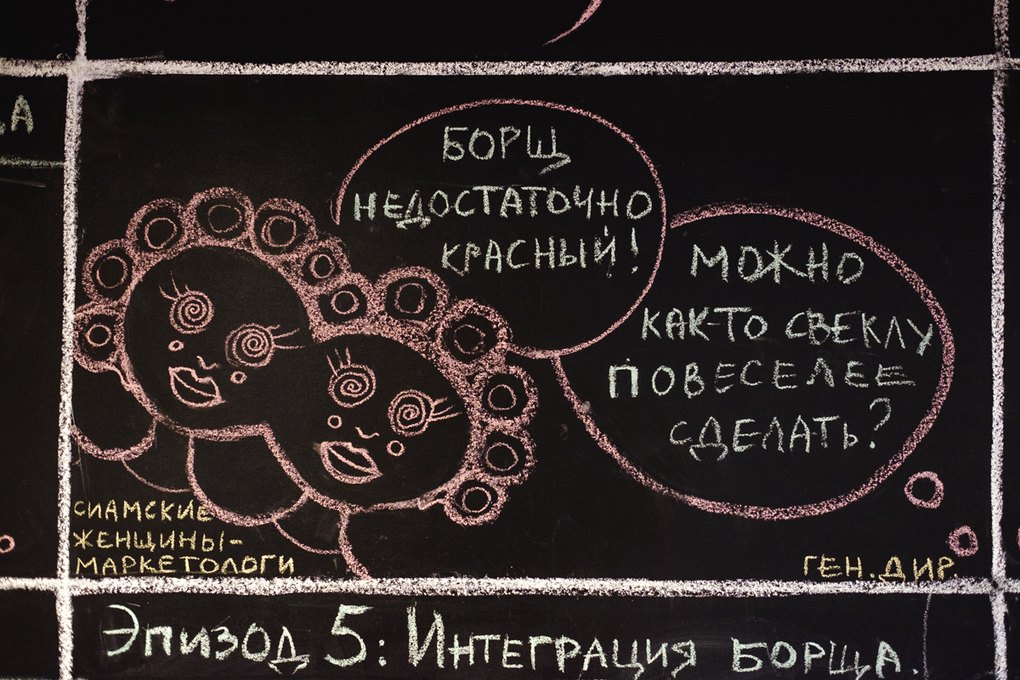 БОРЩ
НЕДОСТАТОЧНО
КРАСНЫЙ!
МОЖНО
КАК-ТО СВЕКЛУ
ПОВЕСЕЛЕЕ
СДЕЛАТЬ?
СИАМСКИЕ
ЖЕНЩИНЫ-
МАРКЕТОЛОГИ
ГЕН. ДИР.
Эпизод 5: Интеграция борща.